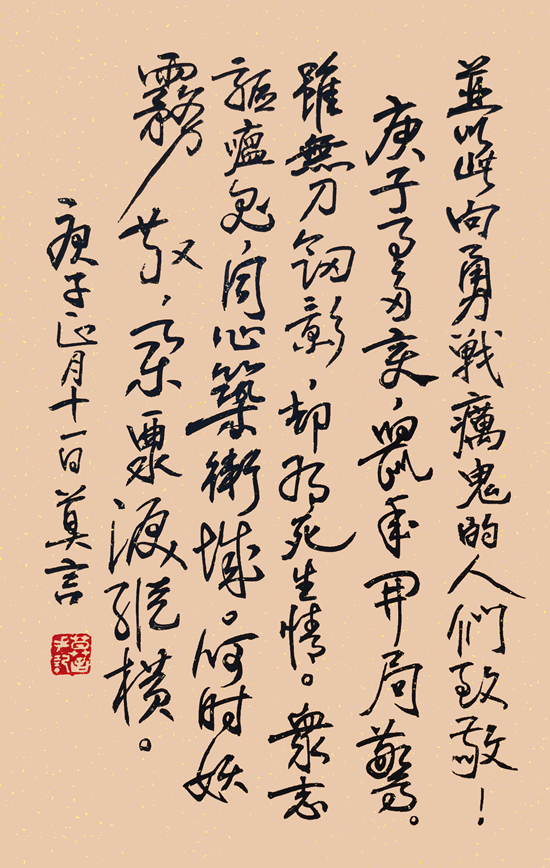 並以此向勇戰癘鬼的人們致敬！
庚子事多变，鼠年開局驚。
雖無刀劍影，却有死生情。衆志
驅瘟鬼，同心築衛城。何時妖
霧散，淚縱橫。
庚子正月十一日 莫言